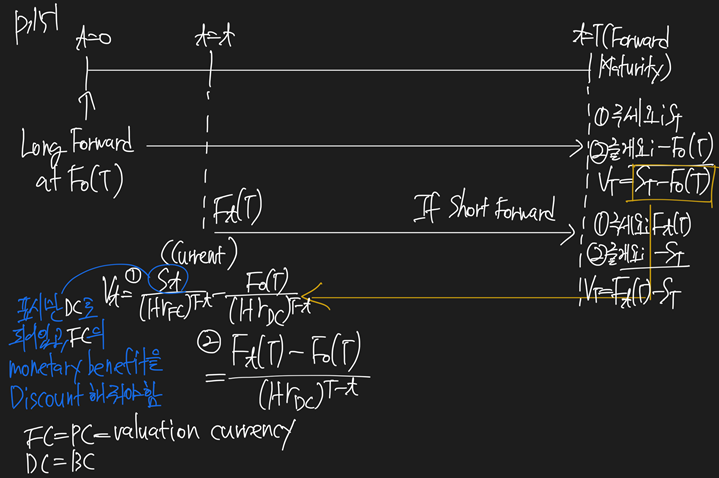 p.151
t=0
t=t
t=T(Forward
Maturity)
Long Forward
at F₀(T)
①주세요: S_T
②줄게요: -F₀(T)
V_T=S_T-F₀(T)
F_t(T)
(Current)
If Short Forward
①주세요: F_t(T)
②줄게요: -S_T
V_T=F_t(T)-S_T
V_t= ① S_t/(1+r_FC)^T-t - F₀(T)/(1+r_DC)^T-t
② = F_t(T)-F₀(T)/(1+r_DC)^T-t
표시만 DC로
되어있고, FC의
monetary benefit을
Discount 해줘야함
FC=PC=valuation currency
DC=BC